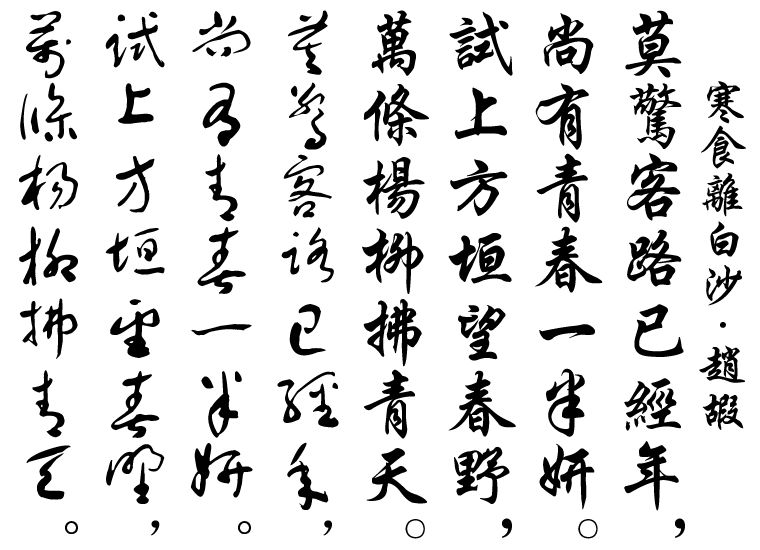 寒食離白沙·趙嘏
莫驚客路已經年，
尚有青春一半妍。
試上方垣望春野，
萬條楊柳拂青天。
莫驚客路已經年，
尚有青春一半妍。
試上方垣望春野，
萬條楊柳拂青天。